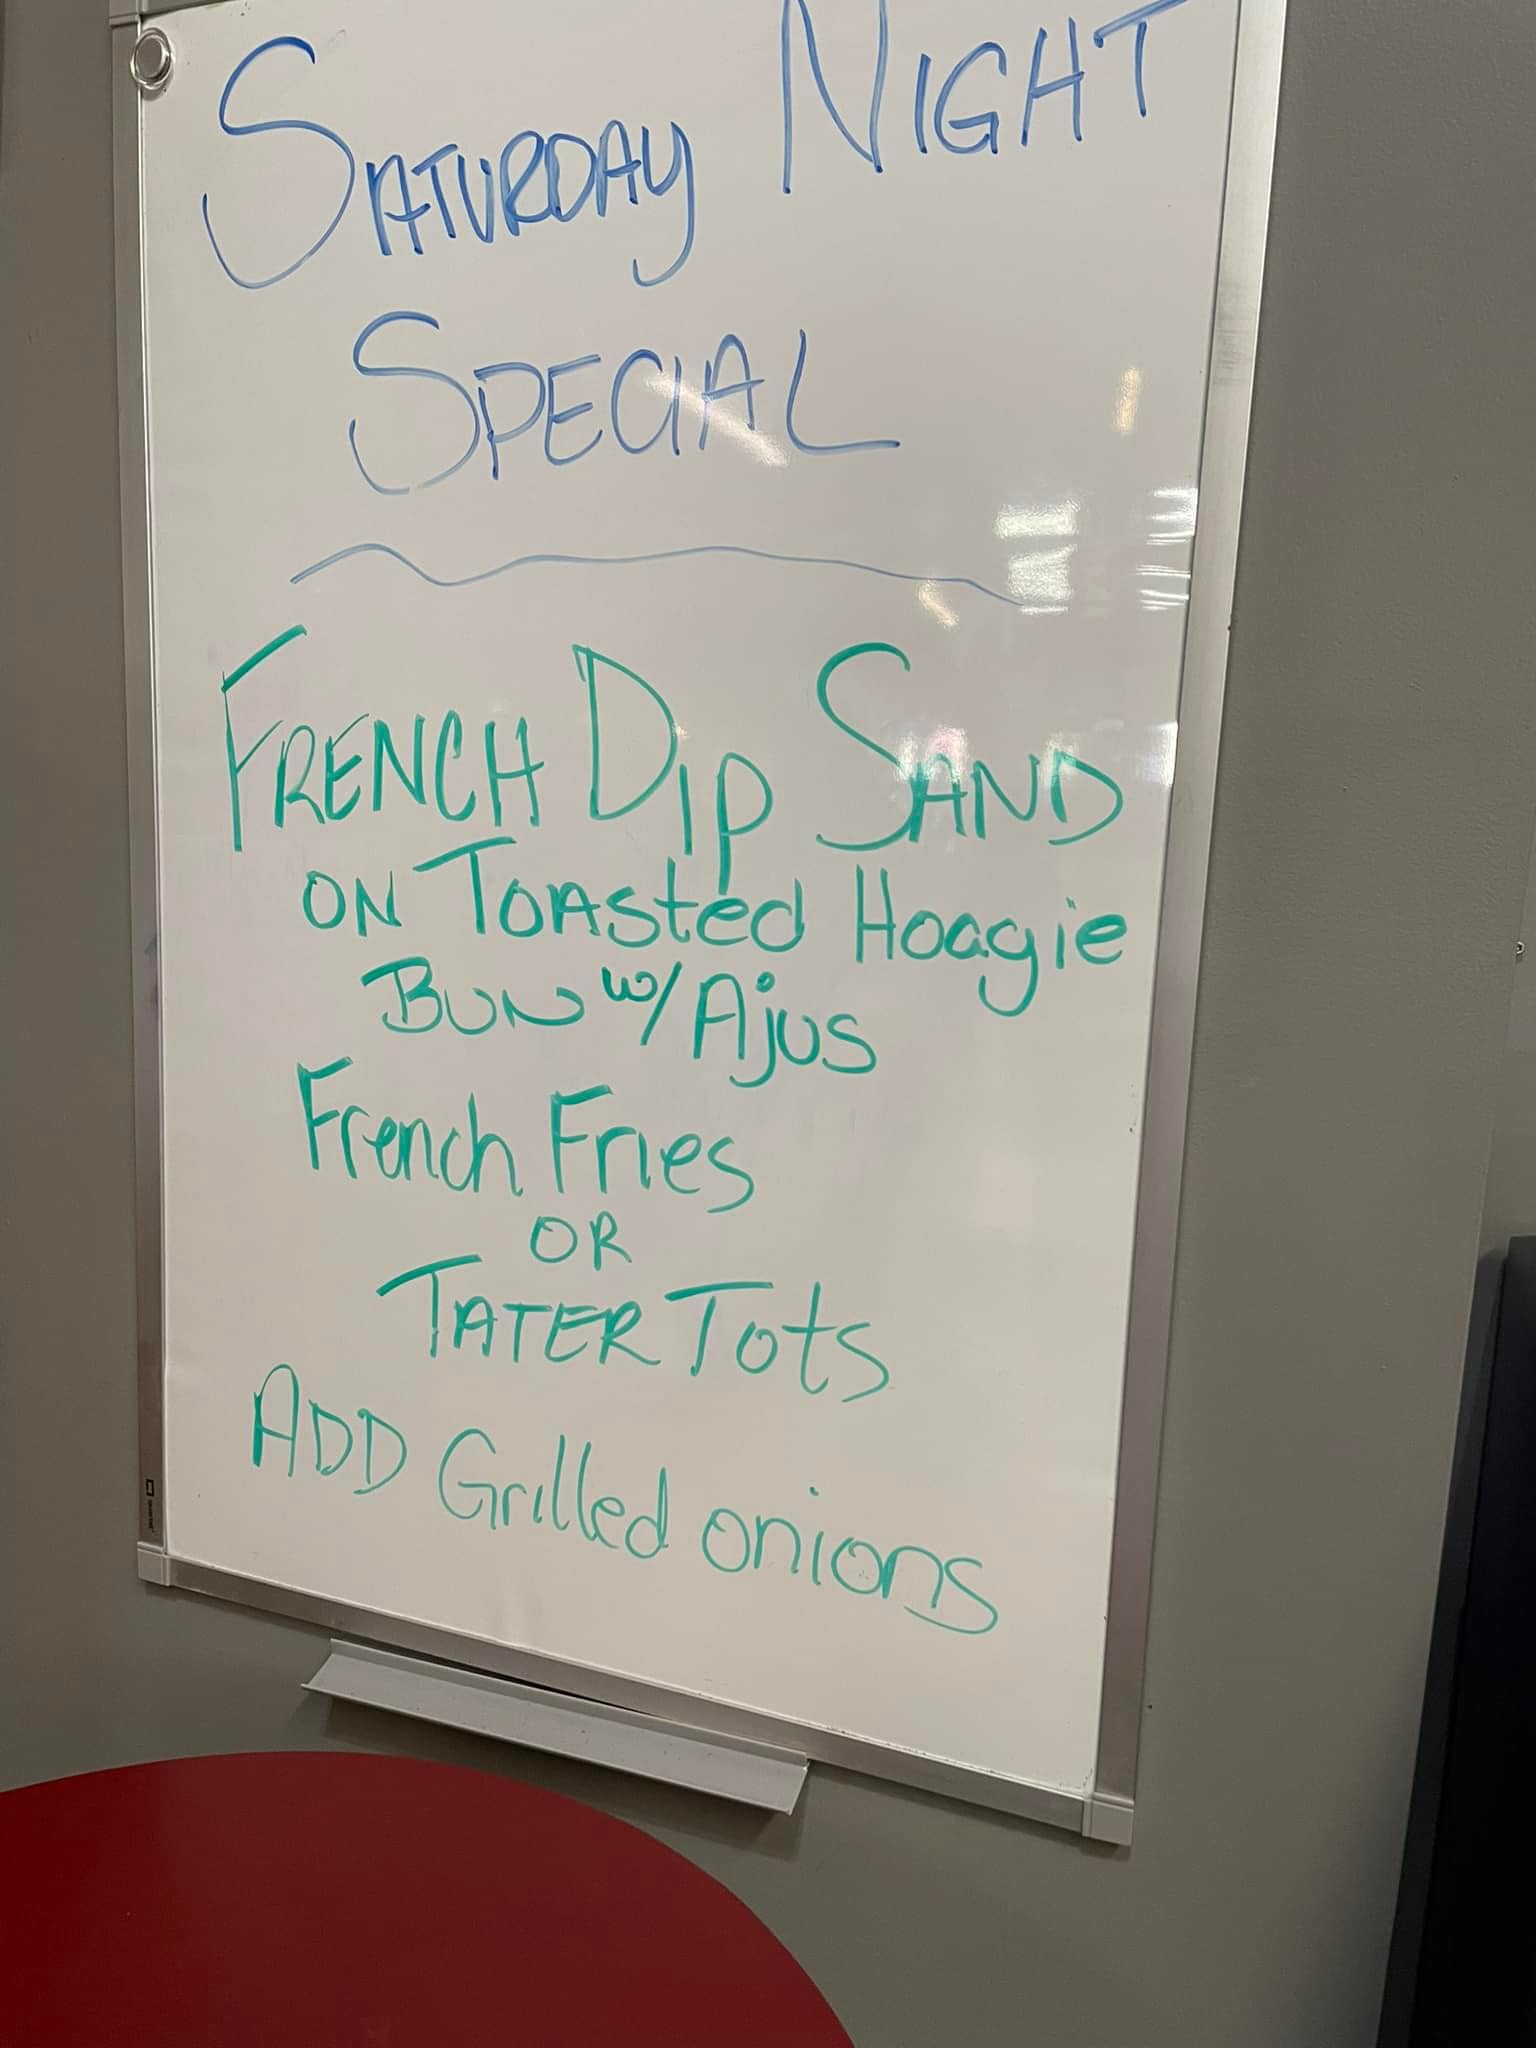 SATURDAY NIGHT
SPECIAL
FRENCH DIP SAND
ON TOASted Hoagie
BUN w/ Ajus
French Fries
OR
TATER Tots
ADD Grilled onions